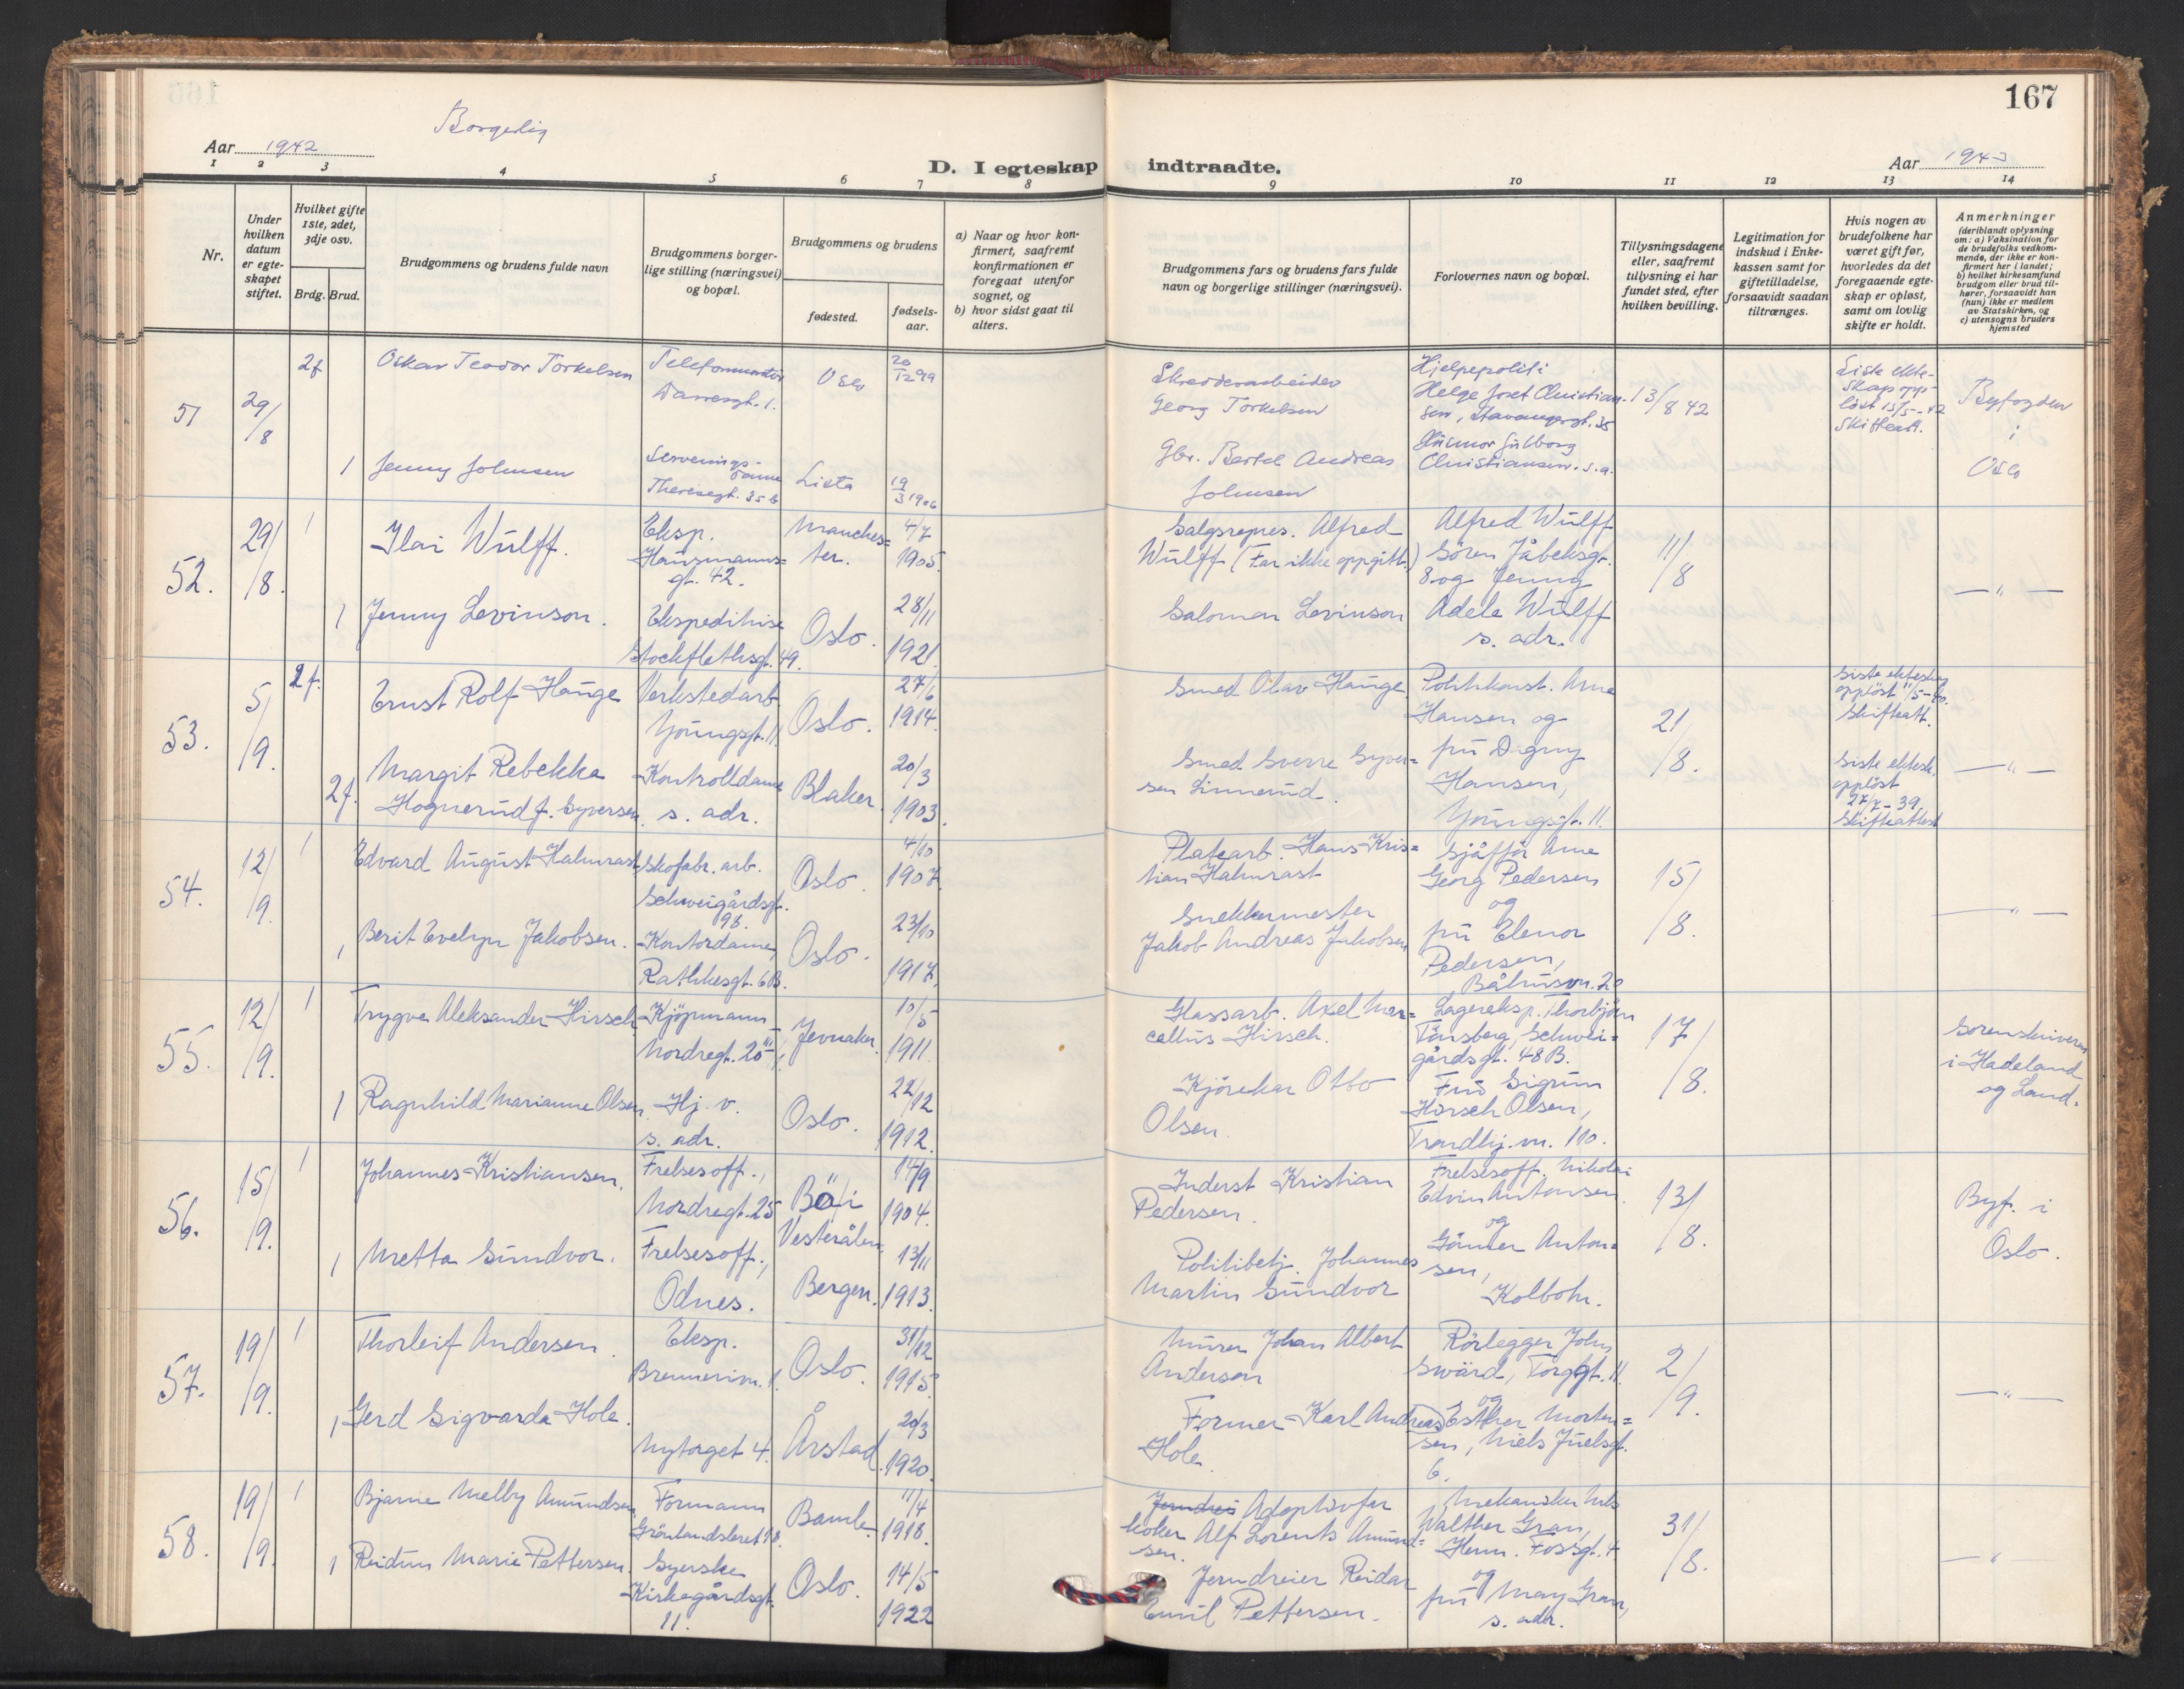 167
Borgerlig
Aar 1942
D. I egteskap indtraadte.
Aar 194
1 2 3 4 5 6 7 8 9 10 11 12 13 14
Nr.
Under hvilken datum er egteskapet stiftet.
Hvilket gifte 1ste, 2det, 3dje osv.
Brdg. Brud.
Brudgommens og brudens fulde navn
Brudgommens borgerlige stilling (næringsvei) og bopæl.
Brudgommens og brudens
fødested.
fødselsaar.
a) Naar og hvor konfirmert, saafremt konfirmationen er foregaat utenfor sognet, og
b) hvor sidst gaat til alters.
Brudgommens fars og brudens fars fulde navn og borgerlige stillinger (næringsvei).
Forlovernes navn og bopæl.
Tillysningsdagene eller, saafremt tillysning ei har fundet sted, efter hvilken bevilling.
Legitimation for indskud i Enkekassen samt for giftetilladelse, forsaavidt saadan tiltrænges.
Hvis nogen av brudefolkene har været gift før, hvorledes da det foregaaende egteskap er opløst, samt om lovlig skifte er holdt.
Anmerkninger
(deriblandt oplysning om: a) Vaksination for de brudefolks vedkommende, der ikke er konfirmert her i landet;
b) hvilket kirkesamfund brudgom eller brud tilhører, forsaavidt han (hun) ikke er medlem av Statskirken, og
c) utensogns bruders hjemsted
51
29/8
2f
Oskar Teodor Torkelsen
Telefonmontør
gt. 1.
Oslo
20/12 99
Skredderarbeider
Georg Torkelsen
Hjelpepoliti
Helge Josef Christiansen, Stavangergt. 35
13/8 42
Siste ekteskap oppløst 15/5-42
Skifteatt.
Byfogden
i
Oslo
1
Jenny Johnsen
Serveringsdame
Theresegt. 35 b
Lista
19/3 1906
Gbr. Bertel Andreas
Johnsen
Christiansen. s.a.
52.
29/8.
1
Ilai Wulff.
Eksp.
Hausmannsgt. 42.
Manchester.
4/7 1905.
Salgsrepres. Alfred
Wulff (Far ikke oppgitt.)
Alfred Wulff
Sören Jåbeksgt.
8. og Jenny
Adele Wulff
s. adr.
11/8
— " —
1
Jenny Levinson.
Ekspeditrise
Stockflethsgt. 49.
Oslo.
28/11 1921.
Salomon Levinson
53.
5/9.
2f.
Ernst Rolf Hauge
Verkstedarb.
Youngsgt. 11.
Oslo.
27/6 1914.
Smed Olav Hauge
Politikonst. Arne
Hansen og
fru Dagny
Hansen,
Youngsgt. 11.
21/8.
Siste ekteskap
oppløst /5-40.
Skifteatt.
2f.
Margit Rebekka
Hognerud f. Syversen.
Kontrolldame
s. adr.
Blaker.
20/3 1903.
Smed Sverre Syversen Linnerud.
Siste ektesk.
oppløst
27/7-39.
Skifteattest
— " —
54.
12/9.
1
Edvard August Halmrast
Skofabr. arb.
Schweigårdsgt.
98.
Oslo.
4/10 1907.
Platearb. Hans Kristian Halmrast
Sjåfför Arne
Georg Pedersen
og
fru Elenor
Pedersen,
Bålerusvn. 20
15/8.
— " —
1
Berit Evelyn Jakobsen.
Kontordame,
Rathkesgt. 6B.
Oslo.
23/10 1917.
Snekkermester
Jakob Andreas Jakobsen
55.
12/9.
1
Trygve Aleksander Hirsch
Kjöpmann
Nordregt. 20 III,
Jevnaker.
10/5 1911.
Glassarb. Axel Marcellius Hirsch.
Lagereksp. Thorbjörn
Tönsberg, Schweigårdsgt. 48 B.
Fru Sigrun
Hirsch Olsen,
Trondhj.vn. 110.
17/8.
Sorenskriveren
i Hadeland
og Land.
1
Ragnhild Marianne Olsen.
Hj. v.
s. adr.
Oslo.
22/12 1912.
Kjörekar Otto
Olsen.
56.
15/9.
1
Johannes Kristiansen.
Frelsesoff.,
Nordregt. 25
Bö i
Vesterålen.
14/9 1904.
Inderst Kristian
Pedersen.
Frelsesoff. Nikolai
Edvin Antonsen.
og
Gunner Antonsen,
Kolbotn.
13/8.
Byf. i
Oslo.
1
Metta Sundvor.
Frelsesoff.,
Odnes.
Bergen.
13/11 1913.
Politibetj. Johannes
Martin Sundvor
57.
19/9.
1
Thorleif Andersen.
Eksp.
Bremerivn. 1.
Oslo.
31/12 1915.
Murer Johan Albert
Andersen
Rörlegger John
Swärd, Torggt. 11.
og
Esther Mortensen, Niels Juelsgt.
6.
2/9.
— " —
1
Gerd Sigvarda Hole.
Nytorget 4.
Årstad.
20/3 1920.
Former Karl Andreas
Hole.
58.
19/9.
1
Bjarne Melby Amundsen
Formann
Grönlandsleret 78.
Bamle.
11/4 1918.
Adoptivfar
koker Alf Lorents Amundsen.
Mekaniker Nils
Walther Gran,
Herm. Fossgt. 4
og
fru May Gran,
s. adr.
31/8.
— " —
1
Reidun Marie Pettersen.
Syerske
Kirkegårdsgt.
11.
Oslo.
14/5 1922
Jerndreier Reidar
Emil Pettersen.